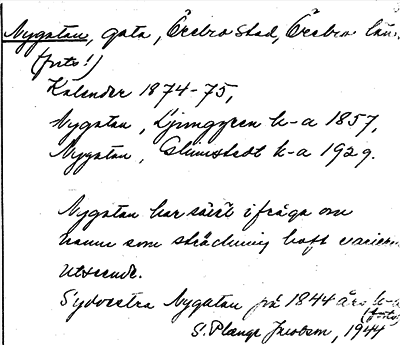 Nygatan, gata, Örebro stad, Örebro län.
(forts!)
Kalender 1874-75,
Nygatan, Ljunggren k-a 1857,
Nygatan, Glimstedt k-a 1929.
Nygatan har såväl ifråga om
namn som sträckning haft varieran
utseende.
Sydvästra Nygatan på 1844 års k-a
(forts.
S. Plange Jacobson, 1944